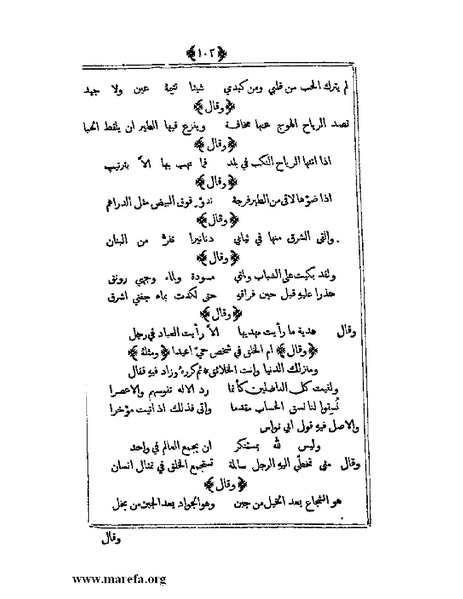 ﴿ ١٠٢ ﴾
لم يترك الحب من قلبي ومن كبدي شيئا تتيمه عين ولا جيد
﴿ وقال ﴾
تصد الرياح الهوج عنها مخافة ويفزع فيها الطير ان يلقط الحبا
﴿ وقال ﴾
اذا اتتها الرياح النكب في بلد فما تهب بها الا بترتيب
﴿ وقال ﴾
اذا ضوّها لاقى من الطير فرجة تدوّر فوق البيض مثل الدراهم
﴿ وقال ﴾
والقى الشرق منها في ثيابي دنانيرا تفرّ من البنان
﴿ وقال ﴾
ولقد بكيت على الشباب ولمتي مسودة ولماء وجهي رونق
حذرا عليه قبل حين فراقه حتى لكدت بماء جفني اشرق
﴿ وقال ﴾
وقال هدية ما رأيت مهديها الا رأيت العباد في رجل
﴿ وقال ﴾ ام الخلق في شخص حيّ اعيدا ﴿ ومثله ﴾
ومنزلك الدنيا وانت الخلائق ثم كرره وزاد فيه فقال
ولقيت كل الفاضلين كأنما رد الاله نفوسهم والاعصرا
نُسِقوا لنا نسق الحساب مقدما واتى فذلك اذ اتيت مؤخرا
والاصل فيه قول ابي نواس
وليس لله بمستنكر ان يجمع العالم في واحد
وقال متى تخطّي اليه الرجل سالمة تستجمع الخلق في تمثال انسان
﴿ وقال ﴾
هو الشجاع يعد البخل من جبن وهو الجواد يعد الجبن من بخل
وقال
www.marefa.org